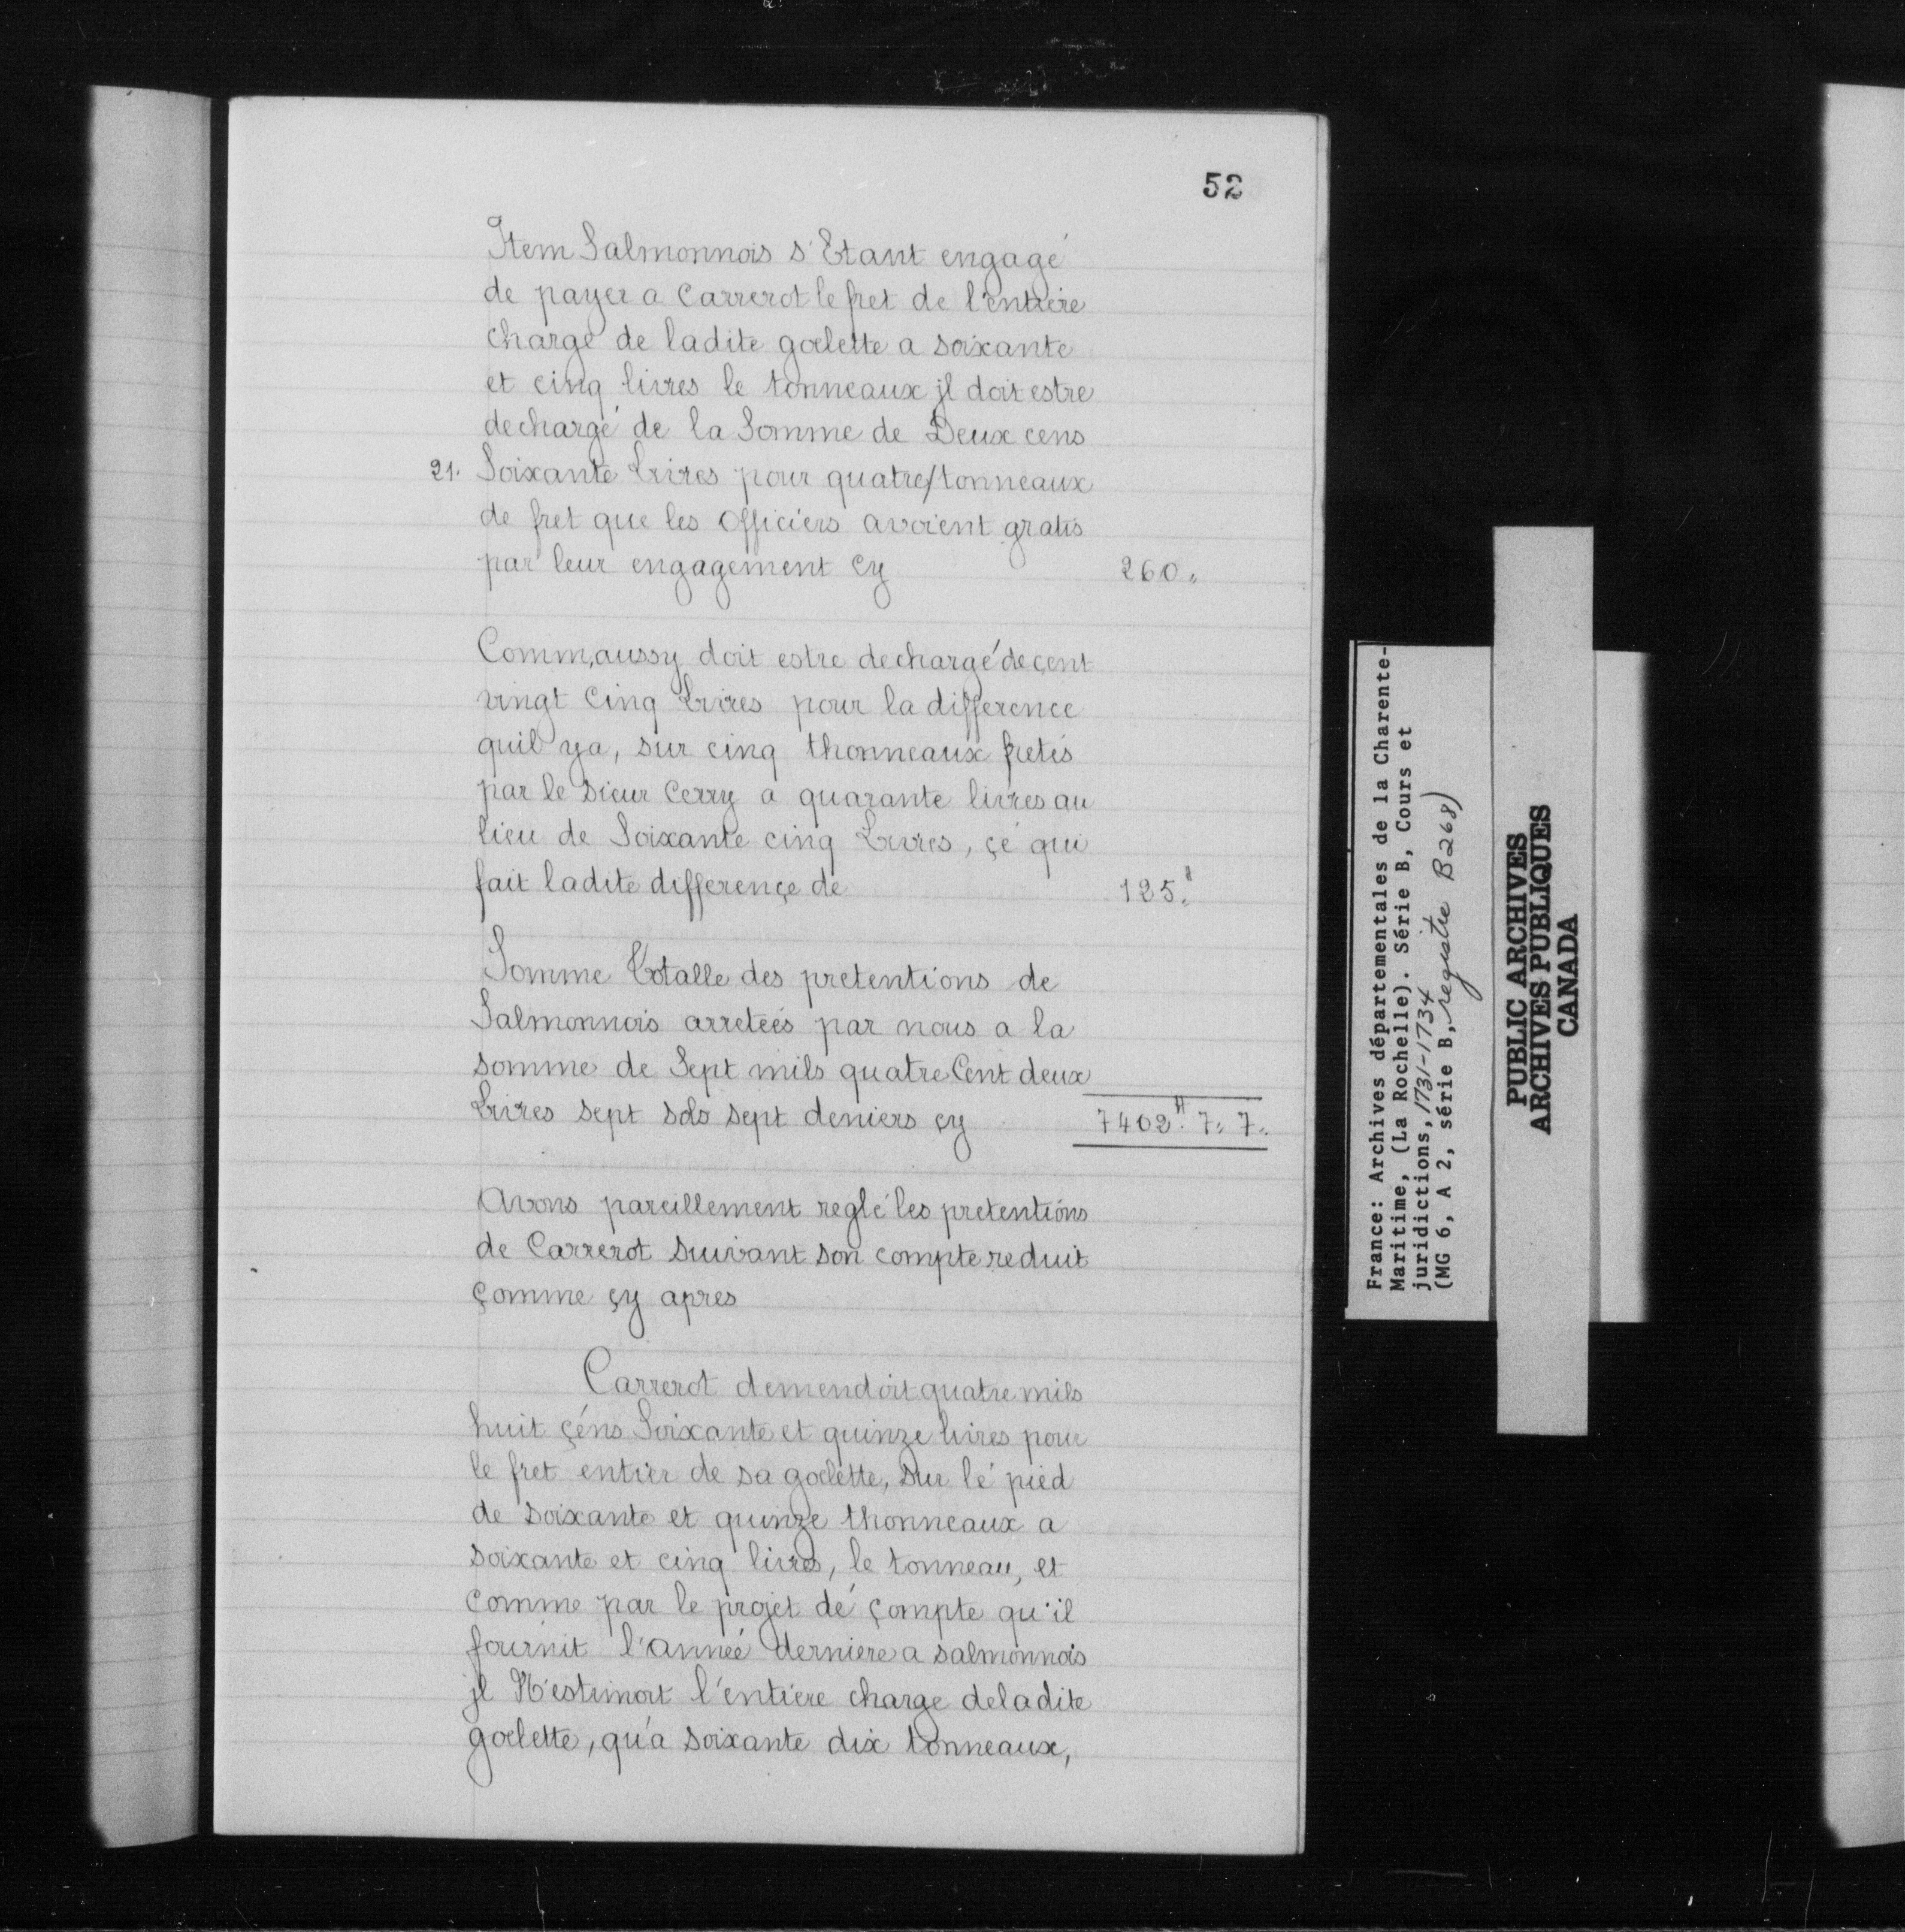 52
Item Salmonnois s'Etant engagé
de payer a Carrerot le fret de l'entiere
charge de ladite goelette a soixante
et cinq livres le tonneaux jl doit estre
dechargé de la Somme de Deux cens
21. Soixante Livres pour quatre/tonneaux
de fret que les Officiers avoient gratis
par leur engagement Cy 260.
Comm,aussy doit estre dechargé de çent
vingt Cinq Livres pour la difference
quil ya, sur cinq thonneaux fretés
par le Sieur Cerry a quarante livres au
lieu de Soixante cinq Livres, çe qui
fait ladite differençe de 125.
Somme Totalle des pretentions de
Salmonnois arretées par nous a la
somme de Sept mils quatre Cent deux
Livres sept sols sept deniers çy 7402.ᴴ 7. 7.
Avons pareillement reglé les pretentions
de Carrerot suivant son compte reduit
çomme çy apres
Carrerot demendoit quatre mils
huit çéns Soixante et quinze livres pour
le fret entier de sa goelette, sur lé pied
de soixante et quinze thonneaux a
soixante et cinq livres, le tonneau, et
comme par le projet dé çompte qu'il
fournit l'année derniere a salmonnois
jl N'estimoit l'entiere charge deladite
goelette, qu'a soixante dix tonneaux,
France: Archives départementales de la Charente-
Maritime, (La Rochelle). Série B, Cours et
juridictions, 1731-1734
(MG 6, A 2, série B, registre B268)
PUBLIC ARCHIVES
ARCHIVES PUBLIQUES
CANADA